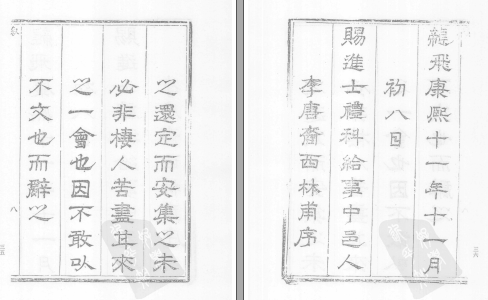 之還定而安集之未
必非棲人苦盡甘來
之一會也因不敢以
不文也而辭之
龍飛康熙十一年十一月
初八日
賜進士禮科給事中邑人
李唐裔西林甫序